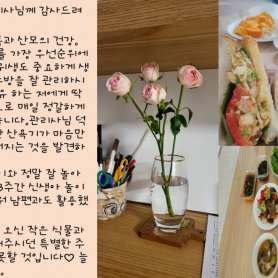 리사님께 감사드려
과 산모의 건강,
를 가장 우선순위에
위생도 중요하게 생
방을 잘 관리하시
유 하는 저에게 딱
로 매일 정갈하게
니다.관리사님 덕
산욕기가 마음만
지는 것을 발견하
와 정말 잘 놀아
3주간 신생아 놀이
남편과도 활용했
오신 작은 식물과
해주시던 특별한 주
못할 것입니다♡ 늘